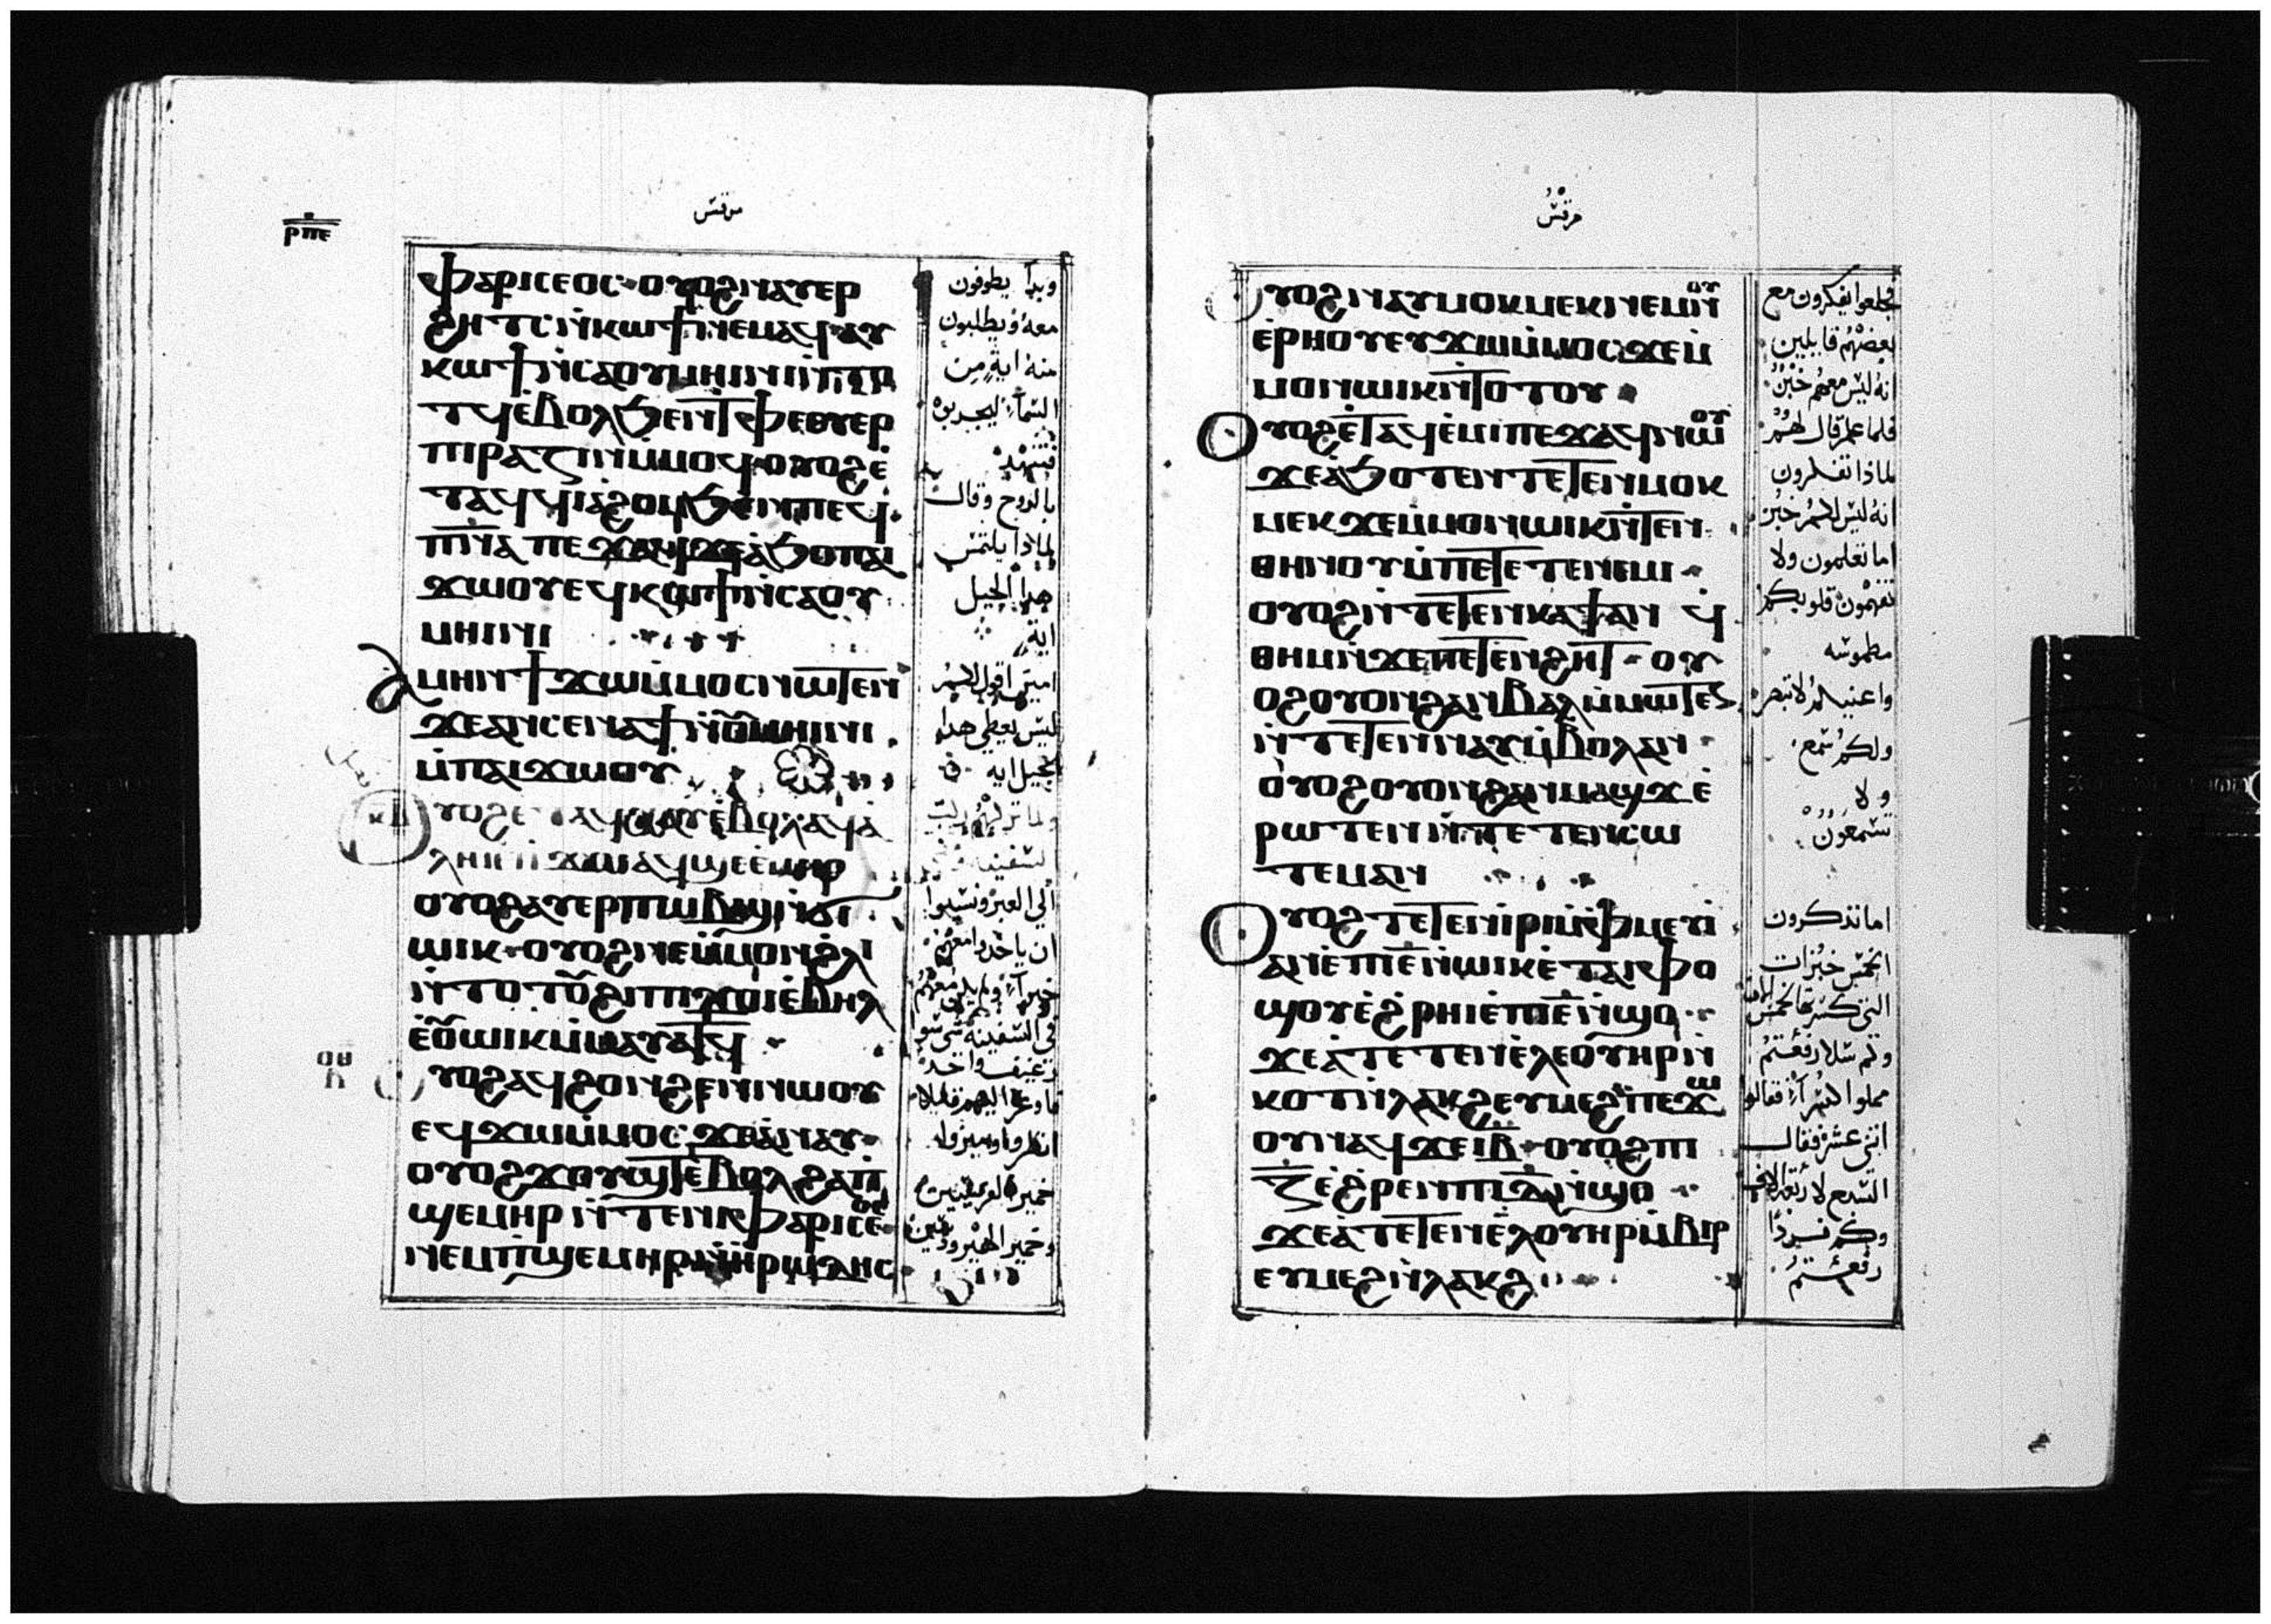 ⲣⲡⲉ
مرقس
ⲫⲁⲣⲓⲥⲉⲟⲥ ⲟⲩⲟϩ ⲛⲁⲩⲉⲣ
ϩⲏⲧⲥ ⲛ̀ⲕⲱϯ ⲛⲉⲙⲁϥ ⲁⲩ
ⲕⲱϯ ⲛ̀ⲥⲁ ⲟⲩⲙⲏⲓⲛⲓ ⲛ̀ⲧⲟ
ⲧϥ ⲉ̀ⲃⲟⲗ ϧⲉⲛ ⲧⲫⲉ ⲉⲩⲉⲣ
ⲡⲓⲣⲁⲍⲓⲛ ⲙ̀ⲙⲟϥ ⲟⲩⲟϩ ⲉ̀
ⲧⲁϥϥⲓⲁϩⲟⲙ ϧⲉⲛ ⲡⲉϥ
ⲡⲛ̅ⲁ̅ ⲡⲉϫⲁϥ ϫⲉ ⲁ̀ϧⲟ ⲡⲁⲓ
ϫⲱⲟⲩ ⲉϥⲕⲱϯ ⲛ̀ⲥⲁ ⲟⲩ
ⲙⲏⲓⲛⲓ
ⲁⲙⲏⲛ ϯϫⲱ ⲙ̀ⲙⲟⲥ ⲛⲱⲧⲉⲛ
ϫⲉ ⲁⲛ ⲥⲉⲛⲁϯ ⲛ̀ⲟⲩⲙⲏⲓⲛⲓ
ⲙ̀ⲡⲁⲓϫⲱⲟⲩ
ⲟⲩⲟϩ ⲉⲧⲁϥⲭⲁⲩ ⲉ̀ⲃⲟⲗ ⲁϥⲁ̀
ⲗⲏⲓ ⲉ̀ⲡⲓϫⲟⲓ ⲁϥϣⲉ ⲉ̀ⲙⲏⲣ
ⲟⲩⲟϩ ⲁⲩⲉⲣⲡⲱⲃϣ ⲛ̀ϭⲓ
ⲱⲓⲕ ⲟⲩⲟϩ ⲛⲉ ⲙ̀ⲙⲟⲛ ϩ̀ⲗⲓ
ⲛ̀ⲧⲟⲧⲟⲩ ϩⲓ ⲡⲓϫⲟⲓ ⲉ̀ⲃⲏⲗ
ⲉ̀ⲟⲩⲱⲓⲕ ⲙ̀ⲙⲁⲩⲁⲧϥ
ⲟⲩⲟϩ ⲁϥϩⲟⲛϩⲉⲛ ⲛⲱⲟⲩ
ⲉϥϫⲱ ⲙ̀ⲙⲟⲥ ϫⲉ ⲁ̀ⲛⲁⲩ
ⲟⲩⲟϩ ϫⲟⲩϣⲧ ⲉ̀ⲃⲟⲗ ϩⲁ ⲡⲓ
ϣⲉⲙⲏⲣ ⲛ̀ⲧⲉ ⲛⲓⲫⲁⲣⲓⲥⲉⲟⲥ
ⲛⲉⲙ ⲡⲓϣⲉⲙⲏⲣ ⲛ̀ⲏⲣⲱⲇⲏⲥ
وبدا يطوفون
معه ويطلبون
منه اية من
السماء ليجربوه
فتنهد
بالروح وقال
لماذا يلتمس
هدا الجيل
اية
امين اقول لكم
ليس يعطى هدا
الجيل ايه
الى العبر ونسيوا
ان ياخدوا معهم
في السفينه
رغيف واحد
انظروا وميزوا
خمير الفريسيين
وخمير
مرقس
ⲟⲩⲟϩ ⲛⲁⲩⲙⲟⲕⲙⲉⲕ ⲛⲉⲙ ⲛⲟⲩ
ⲉ̀ⲣⲏⲟⲩ ⲉⲩϫⲱ ⲙ̀ⲙⲟⲥ ϫⲉ ⲙ̀
ⲙⲟⲛ ⲱⲓⲕ ⲛ̀ⲧⲟⲧⲟⲩ
ⲟⲩⲟϩ ⲉ̀ⲧⲁϥⲉ̀ⲙⲓ ⲡⲉϫⲁϥ ⲛⲱⲟⲩ
ϫⲉ ⲁ̀ϧⲟⲧⲉⲛ ⲧⲉⲧⲉⲛⲙⲟⲕ
ⲙⲉⲕ ϫⲉ ⲙ̀ⲙⲟⲛ ⲱⲓⲕ ⲛ̀ⲧⲉⲛ
ⲑⲏⲛⲟⲩ ⲙ̀ⲡⲉⲧⲉⲧⲉⲛⲉⲙⲓ
ⲟⲩⲟϩ ⲛ̀ⲧⲉⲧⲉⲛⲕⲁϯ ⲁⲛ ϥ
ⲑⲏⲙ ⲛ̀ϫⲉ ⲡⲉⲧⲉⲛϩⲏⲧ ⲟⲩ
ⲟϩ ⲟⲩⲟⲛ ϩⲁⲛⲃⲁⲗ ⲙ̀ⲙⲱⲧⲉⲛ
ⲛ̀ⲧⲉⲧⲉⲛⲛⲁⲩ ⲙ̀ⲃⲟⲗ ⲁⲛ
ⲟⲩⲟϩ ⲟⲩⲟⲛ ϩⲁⲛⲙⲁϣϫ ⲉ̀
ⲣⲱⲧⲉⲛ ⲛ̀ⲧⲉⲧⲉⲛⲥⲱ
ⲧⲉⲙ ⲁⲛ
ⲟⲩⲟϩ ⲧⲉⲧⲉⲛⲓⲣⲓ ⲙ̀ⲫⲙⲉⲩⲓ
ⲁⲛ ⲉ̀ⲡⲓⲉ̅ ⲛ̀ⲱⲓⲕ ⲉ̀ⲧⲁⲓⲫⲟ
ϣⲟⲩ ⲉ̀ϩ̀ⲣⲏⲓ ⲉ̀ⲡⲓⲉ̅ ⲛ̀ϣⲟ
ϫⲉ ⲁ̀ⲧⲉⲧⲉⲛⲉ̀ⲗ ⲉⲟⲩⲏⲣ ⲛ̀
ⲕⲟⲧ ⲛ̀ⲗⲁⲕϩ ⲉⲩⲙⲉϩ ⲡⲉϫⲱ
ⲟⲩ ⲛⲁϥ ϫⲉ ⲓⲃ̅ ⲟⲩⲟϩ ⲡⲓ
ⲍ̅ ⲉ̀ϩ̀ⲣⲉⲛ ⲡⲓⲇ̅ ⲛ̀ϣⲟ
ϫⲉ ⲁ̀ⲧⲉⲧⲉⲛⲉ̀ⲗ ⲟⲩⲏⲣ ⲙ̀ⲃⲓⲣ
ⲉⲩⲙⲉϩ ⲛ̀ⲗⲁⲕϩ
فجعلوا يفكرون مع
بعضهم قايلين
انه ليس معهم خبز
فلما علم قال لهم
لماذا تفكرون
انه ليس لكم خبز
اما تعلمون ولا
تفهمون قلوبكم
مطموسه
ولا
تسمعون
اما تذكرون
الخمس خبزات
اثنى عشر فقال
وكم
رفعتم